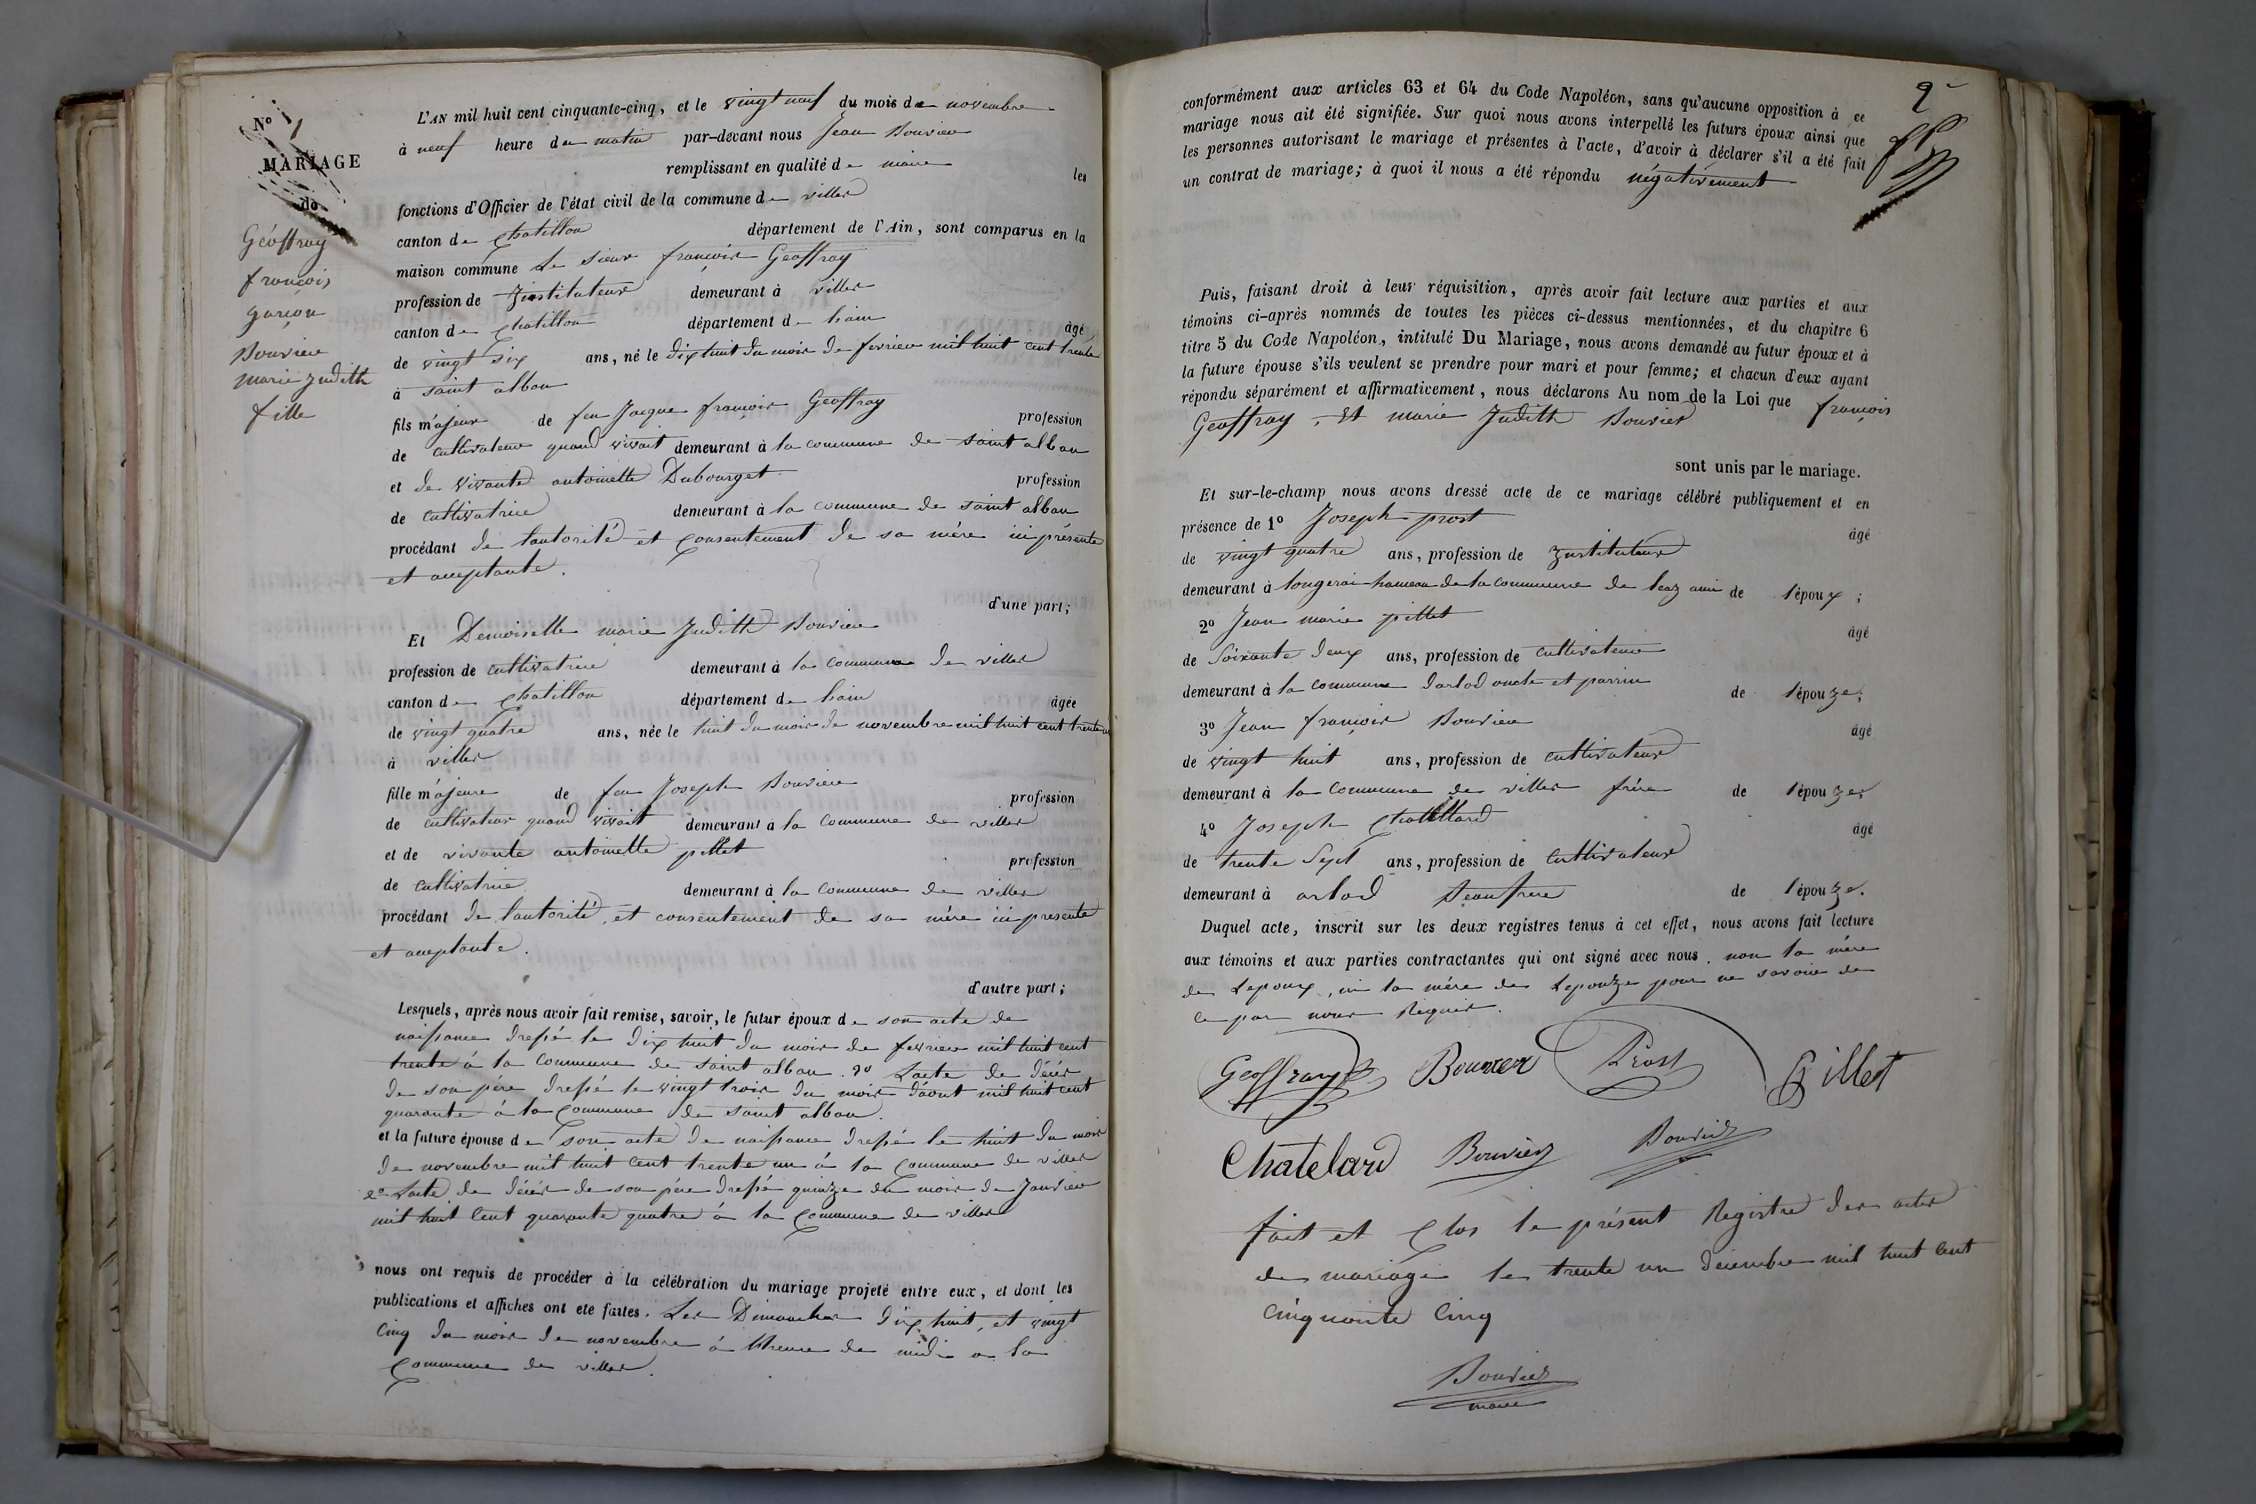 N° 1
MARIAGE
de
Géoffray
françois
garçon
Bouvier
marie Judith
fille
L'AN mil huit cent cinquante-cinq, et le vingt neuf du mois de novembre
à neuf heure du matin par-devant nous Jean Bouvier
remplissant en qualité de maire les
fonctions d'Officier de l'état civil de la commune de villes
canton de Chatillon département de l'Ain, sont comparus en la
maison commune Le sieur françois Geoffray
profession de Instituteur demeurant à villes
canton de Chatillon département de lain âgé
de vingt six ans, né le dix huit du mois de fevrier mil huit cent trente
à saint alban
fils majeur de feu Jacque françois Geoffray profession
de cultivateur quand vivait demeurant à la commune de saint alban
et de vivante antoinette Dubourget profession
de cultivatrice demeurant à la commune de saint alban
procédant de l'autorité et consentement de sa mére ici présente
et acceptante.
d'une part;
Et Demoiselle marie Judith Bouvier
profession de cultivatrice demeurant à la commune de villes
canton de Chatillon département de lain âgée
de vingt quatre ans, née le huit du mois de novembre mil huit cent trente un
à villes
fille majeure de feu Joseph Bouvier profession
de cultivateur quand vivait demeurant à la commune de villes
et de vivante antoinette pillet profession
de cultivatrice demeurant à la commune de villes
procédant de l'autorité, et consentement de sa mére ici presente
et acceptante.
d'autre part;
Lesquels, après nous avoir fait remise, savoir, le futur époux de son acte de
naissance dressé le dix huit du mois de fevrier mil huit cent
trente à la commune de saint alban. 2° L'acte de décés
de son pére dressé le vingt trois du mois d'aout mil huit cent
quarante à la commune de saint alban.
et la future épouse de son acte de naissance dressé le huit du mois
de novembre mil huit cent trente un à la commune de villes
2° L'acte de décés de son pére dressé quinze du mois de Janvier
mil huit cent quarante quatre à la commune de villes
nous ont requis de procéder à la célébration du mariage projeté entre eux, et dont les
publications et affiches ont été faites. Les Dimanches dix huit, et vingt
cinq du mois de novembre à l'heure de midi a la
commune de villes.
2
conformément aux articles 63 et 64 du Code Napoléon, sans qu'aucune opposition à ce
mariage nous ait été signifiée. Sur quoi nous avons interpellé les futurs époux ainsi que
les personnes autorisant le mariage et présentes à l'acte, d'avoir à déclarer s'il a été fait
un contrat de mariage; à quoi il nous a été répondu négativement
Puis, faisant droit à leur réquisition, après avoir fait lecture aux parties et aux
témoins ci-après nommés de toutes les pièces ci-dessus mentionnées, et du chapitre 6
titre 5 du Code Napoléon, intitulé Du Mariage, nous avons demandé au futur époux et à
la future épouse s'ils veulent se prendre pour mari et pour femme; et chacun d'eux ayant
répondu séparément et affirmativement, nous déclarons Au nom de la Loi que françois
Geoffray, Et marie Judith Bouvier
sont unis par le mariage.
Et sur-le-champ nous avons dressé acte de ce mariage célébré publiquement et en
présence de 1° Joseph prost âgé
de vingt quatre ans, profession de Instituteur
demeurant à longerai hameau de la commune de leaz ami de l'époux;
2° Jean marie pillet âgé
de Soixante deux ans, profession de cultivateur
demeurant à la commune d'arlod oncle et parrin de l'épouze;
3° Jean françois Bouvier âgé
de vingt huit ans, profession de cultivateur
demeurant à la commune de villes frére de l'épouze;
4° Joseph Chatellard âgé
de trente sept ans, profession de cultivateur
demeurant à arlod Beaufrere de l'épouze.
Duquel acte, inscrit sur les deux registres tenus à cet effet, nous avons fait lecture
aux témoins et aux parties contractantes qui ont signé avec nous, non la mére
de Lepoux, ni la mére de Lepouze pour ne savoir de
ce par nous Requis.
Geoffray Bouvier Prost Pillet
Chatelard Bouvier Bouvier
fait et Clos le présent Registre des actes
de mariage le trente un décembre mil huit cent
cinquante cinq
Bouvier
maire